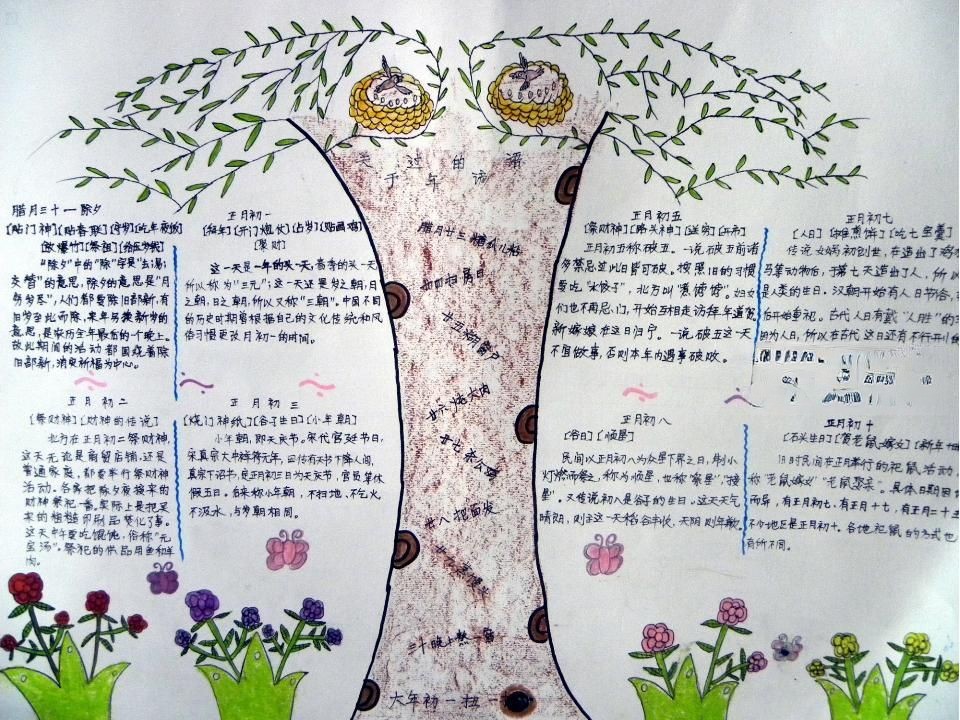 关过的谚
于年俗语
腊月廿三糖瓜儿粘
廿四扫房日
廿五糊窗户
廿六炖大肉
廿七杀公鸡
廿八把面发
三十晚上熬一宿
大年初一扭一
腊月三十一除夕
[贴门神][贴春联][守岁][吃年夜饭]
[放爆竹][祭祖][给压岁钱]
"除夕"中的"除"字是"去;易;
交替"的意思,除夕的意思是"月
穷岁尽",人们都要除旧部新,有
旧岁至此而除,来年另换新岁的
意思,是农历全年最后的一个晚上。
故此期间的活动都围绕着除
旧部新,消灾祈福为中心。
正月初一
[拜年][开门炮仗][占岁][贴画鸡]
[聚财]
这一天是一年的头一天,春季的头一天
所以称为"三元";这一天还是岁之朝,月
之朝,日之朝,所以又称"三朝"。中国不同
的历史时期曾根据自己的文化传统和风
俗习惯更改月初一的时间。
正月初二
[祭财神][财神的传说]
北方在正月初二祭财神,
这天无论是商留店铺,还是
普通家庭,都要举行祭财神
活动。各家把除夕夜接来的
财神祭祀一番。实际上是把买
来的粗糙印刷品焚化了事。
这天中午要吃馄饨,俗称"元
宝汤"。祭祀的供品用鱼和羊
肉。
正月初三
[烧门神纸][谷子生日][小年朝]
小年朝,即天庆节。宋代宫廷节日,
宋真宗大中祥符元年,因传有天书下降人间,
真宗下诏书,定正月初三日为天庆节,官员等休
假五日。后来称小年朝,不扫地、不乞火
不汲水,与岁朝相同。
正月初五
[祭财神][路头神][送穷][开市]
正月初五俗称破五。一说破五前诸
多禁忌过此日皆可破。按照旧的习惯
要吃"水饺子",北方叫"煮饽饽"。妇女
们也不再忌门,开始互相走访拜年道贺
新嫁娘在这日归宁。一说破五这一天
不宜做事,否则本年内遇事破败。
正月初七
[人日][摊煎饼][吃七宝羹]
传说女娲初创世,在造出了鸡
马等动物后,于第七天造出了人,所以
是人类的生日。汉朝开始有人日节俗,
后开始重视。古代人日有戴"人胜"的
为人日,所以在古代这日还有不行
正月初八
[谷日][顺星]
民间以正月初八为众星下界之日,制小
灯燃而祭之,称为顺星,也称"祭星"、"接
星"。又传说初八是谷子的生日。这天天气
晴朗,则主这一天稻谷丰收,天阴则年歉。
正月初十
[石头生日][贺老鼠嫁女]
旧时民间在正月举行的祀鼠活动,
称"老鼠嫁女""老鼠娶亲"。具体日期因
而异,有正月初七、有正月十七,有正月二十五
不少地区是正月初十。各地祀鼠的方式也
有所不同。